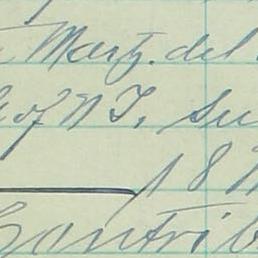 Martz. del
of N J, Su
18
Contrib